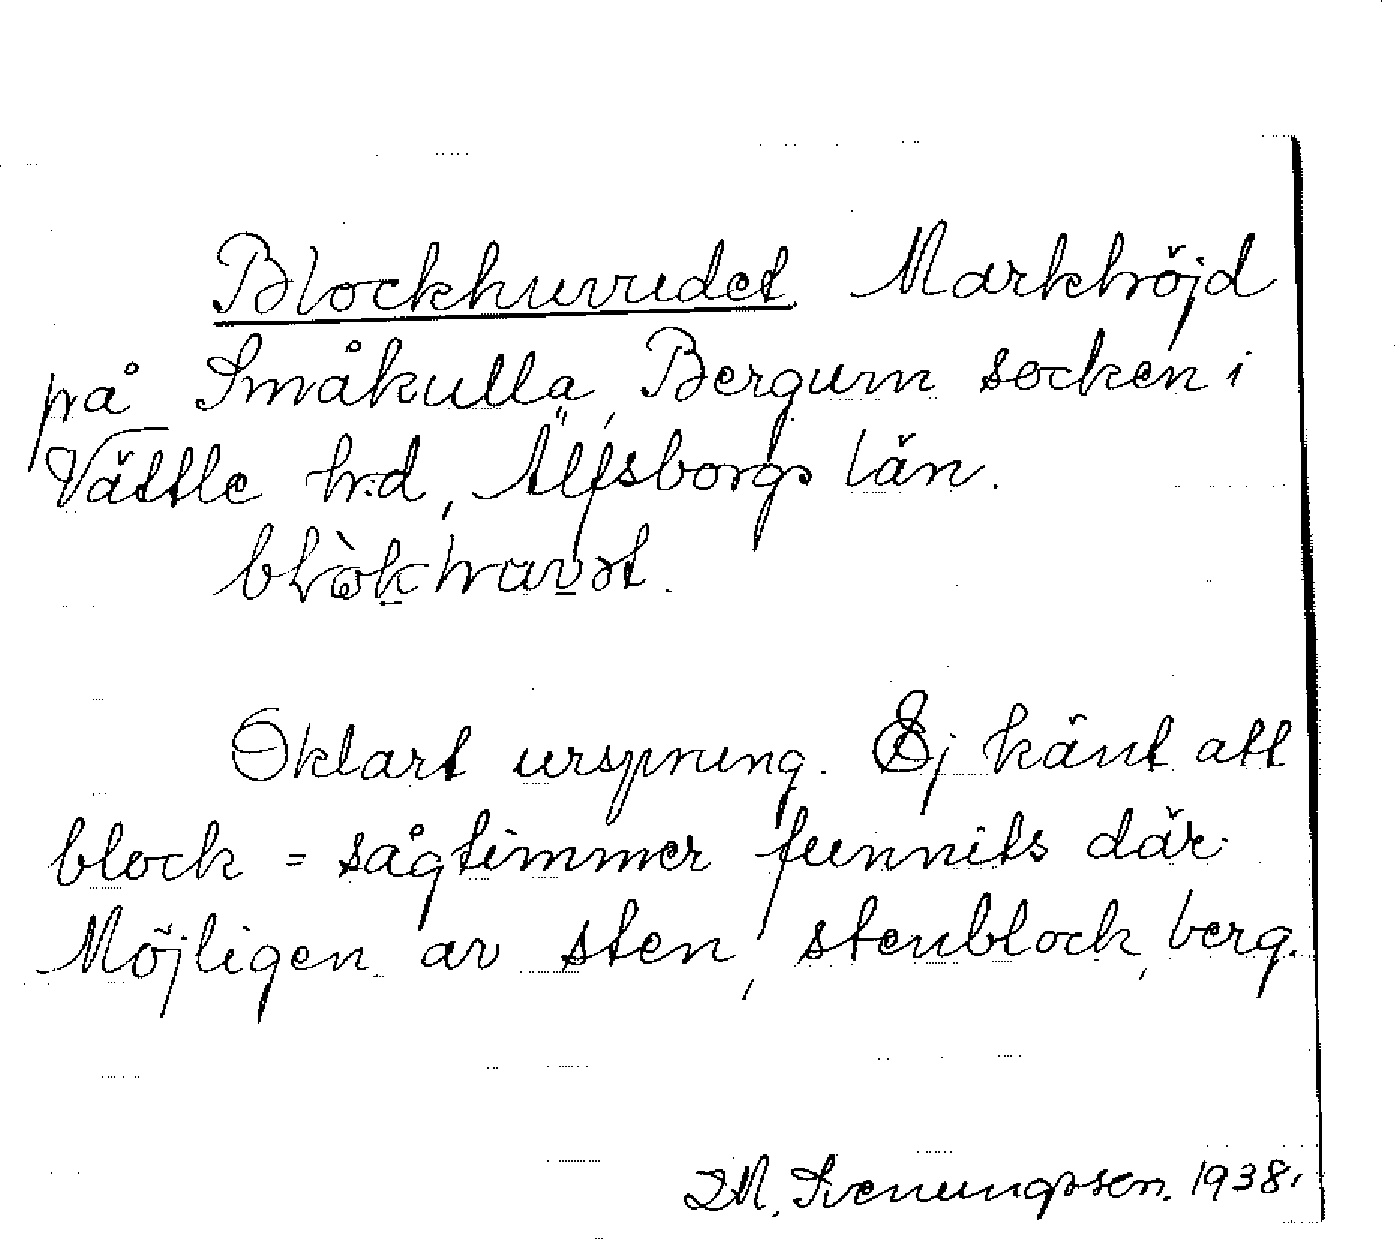 Blockhuvudet. Markhöjd
på Småkulla, Bergum socken i
Vättle hd, Älfsborgs län.
Oklart ursprung. Ej känt att
block = sågtimmer funnits där.
Möjligen av sten, stenblock, berg.
M. Svenungsson. 1938.